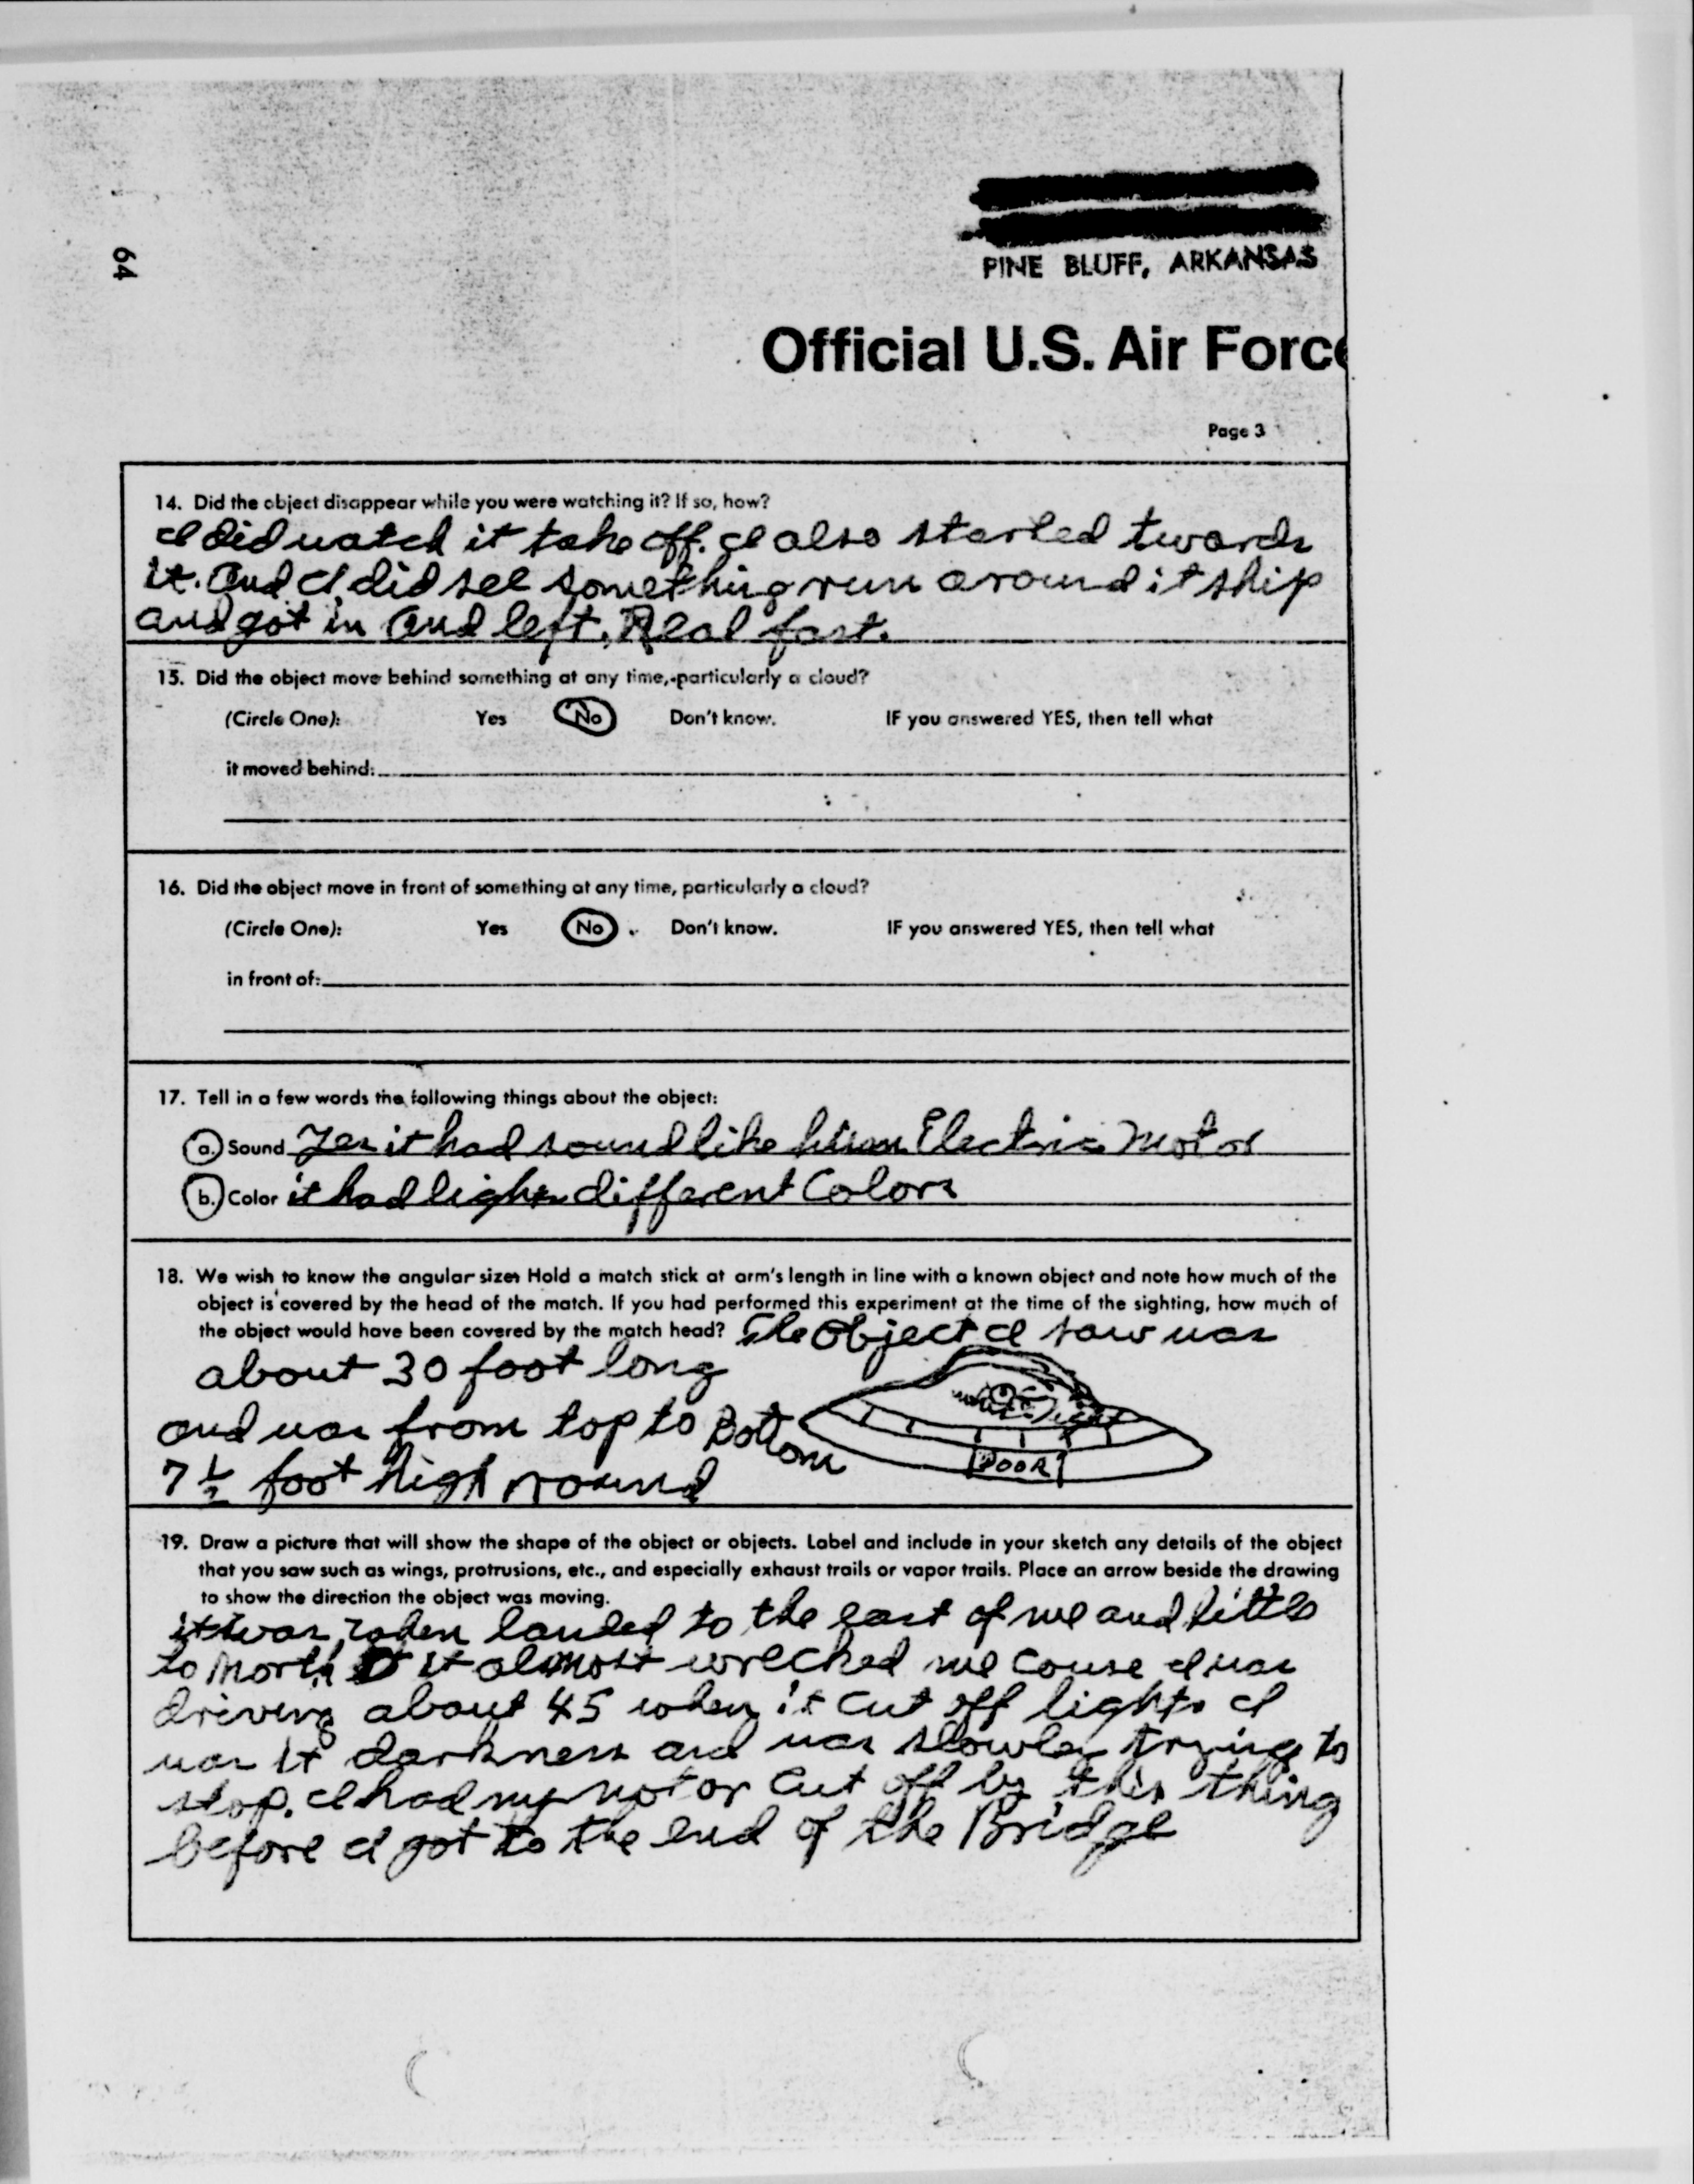 64
PINE BLUFF, ARKANSAS
Official U.S. Air Force
Page 3
14. Did the object disappear while you were watching it? If so, how?
I did watch it take off. I also started twards
it. And I did see something run around it ship
and got in and left. Real fast.
15. Did the object move behind something at any time, particularly a cloud?
(Circle One): Yes No Don't know. IF you answered YES, then tell what
it moved behind:
16. Did the object move in front of something at any time, particularly a cloud?
(Circle One): Yes No Don't know. IF you answered YES, then tell what
in front of:
17. Tell in a few words the following things about the object:
a. Sound Yes it had sound like Electric Motor
b. Color it had lights different Colors
18. We wish to know the angular size. Hold a match stick at arm's length in line with a known object and note how much of the
object is covered by the head of the match. If you had performed this experiment at the time of the sighting, how much of
the object would have been covered by the match head? The object I saw was
about 30 foot long
and was from top to Bottom
7 1/2 foot high round
DOOR
19. Draw a picture that will show the shape of the object or objects. Label and include in your sketch any details of the object
that you saw such as wings, protrusions, etc., and especially exhaust trails or vapor trails. Place an arrow beside the drawing
to show the direction the object was moving.
it was when landed to the east of me and little
to North it almost wrecked me couse I was
driving about 45 when it cut off lights I
was it darkness and was slowley trying to
stop. I had my motor cut off by this thing
before I got to the end of the Bridge